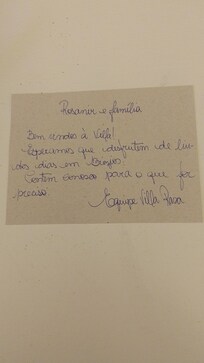 Rosaner e família
Bem vindos à Villa!
Esperamos que desfrutem de lin-
dos dias em Búzios!
Contem conosco para o que for
preciso.
Equipe Villa Rasa